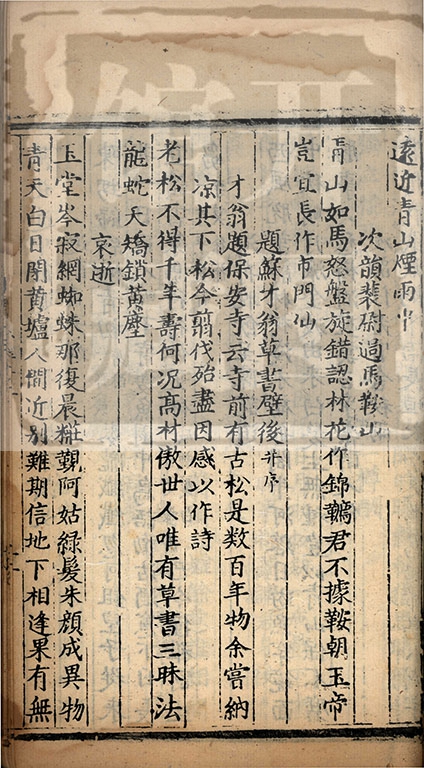 遠近青山煙雨中
次韻裴尉過馬鞍山
青山如馬怒盤旋錯認林花作錦韉君不據鞍朝玉帝
豈宜長作市門仙
題蘇才翁草書壁後并序
才翁題保安寺云寺前有古松是数百年物余嘗納
凉其下松今翦伐殆盡因感以作詩
老松不得千年壽何况髙材傲世人唯有草書三昧法
龍蛇夭矯鎖黄塵
哀逝
玉堂岑寂網蜘蛛那復晨糚觀阿姑緑髮朱顔成異物
青天白日閉黄壚人間近别難期信地下相逢果有無